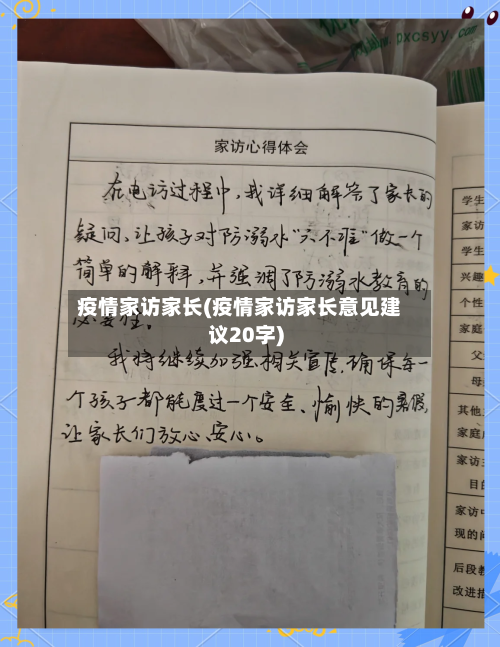 pxcsyy.com
家访心得体会
在电访过程中,我详细解答了家长的
疑问,让孩子对防溺水“六不准”做一个
简单的解释,并强调了防溺水教育的
疫情家访家长(疫情家访家长意见建
议20字)
必要性。
我将继续加强相关宣传,确保每一
个孩子都能度过一个安全、愉快的暑假,
让家长们放心、安心。
学生
家访
学生
兴趣
个性
家庭
父
母
其他
家庭
家访
目的
家访中
现的问
后段教
改进措